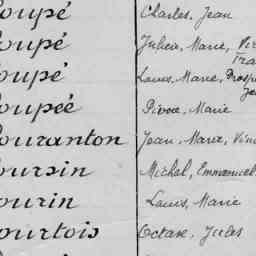 oupé Charles, Jean
oupé Julien, Marie,
oupé Louis, Marie,
oupée Pierre, Marie
ouranton Jean, Marie,
oursin Michel, Emmanuel
ourin Louis, Marie
ourtois Octave, Jules